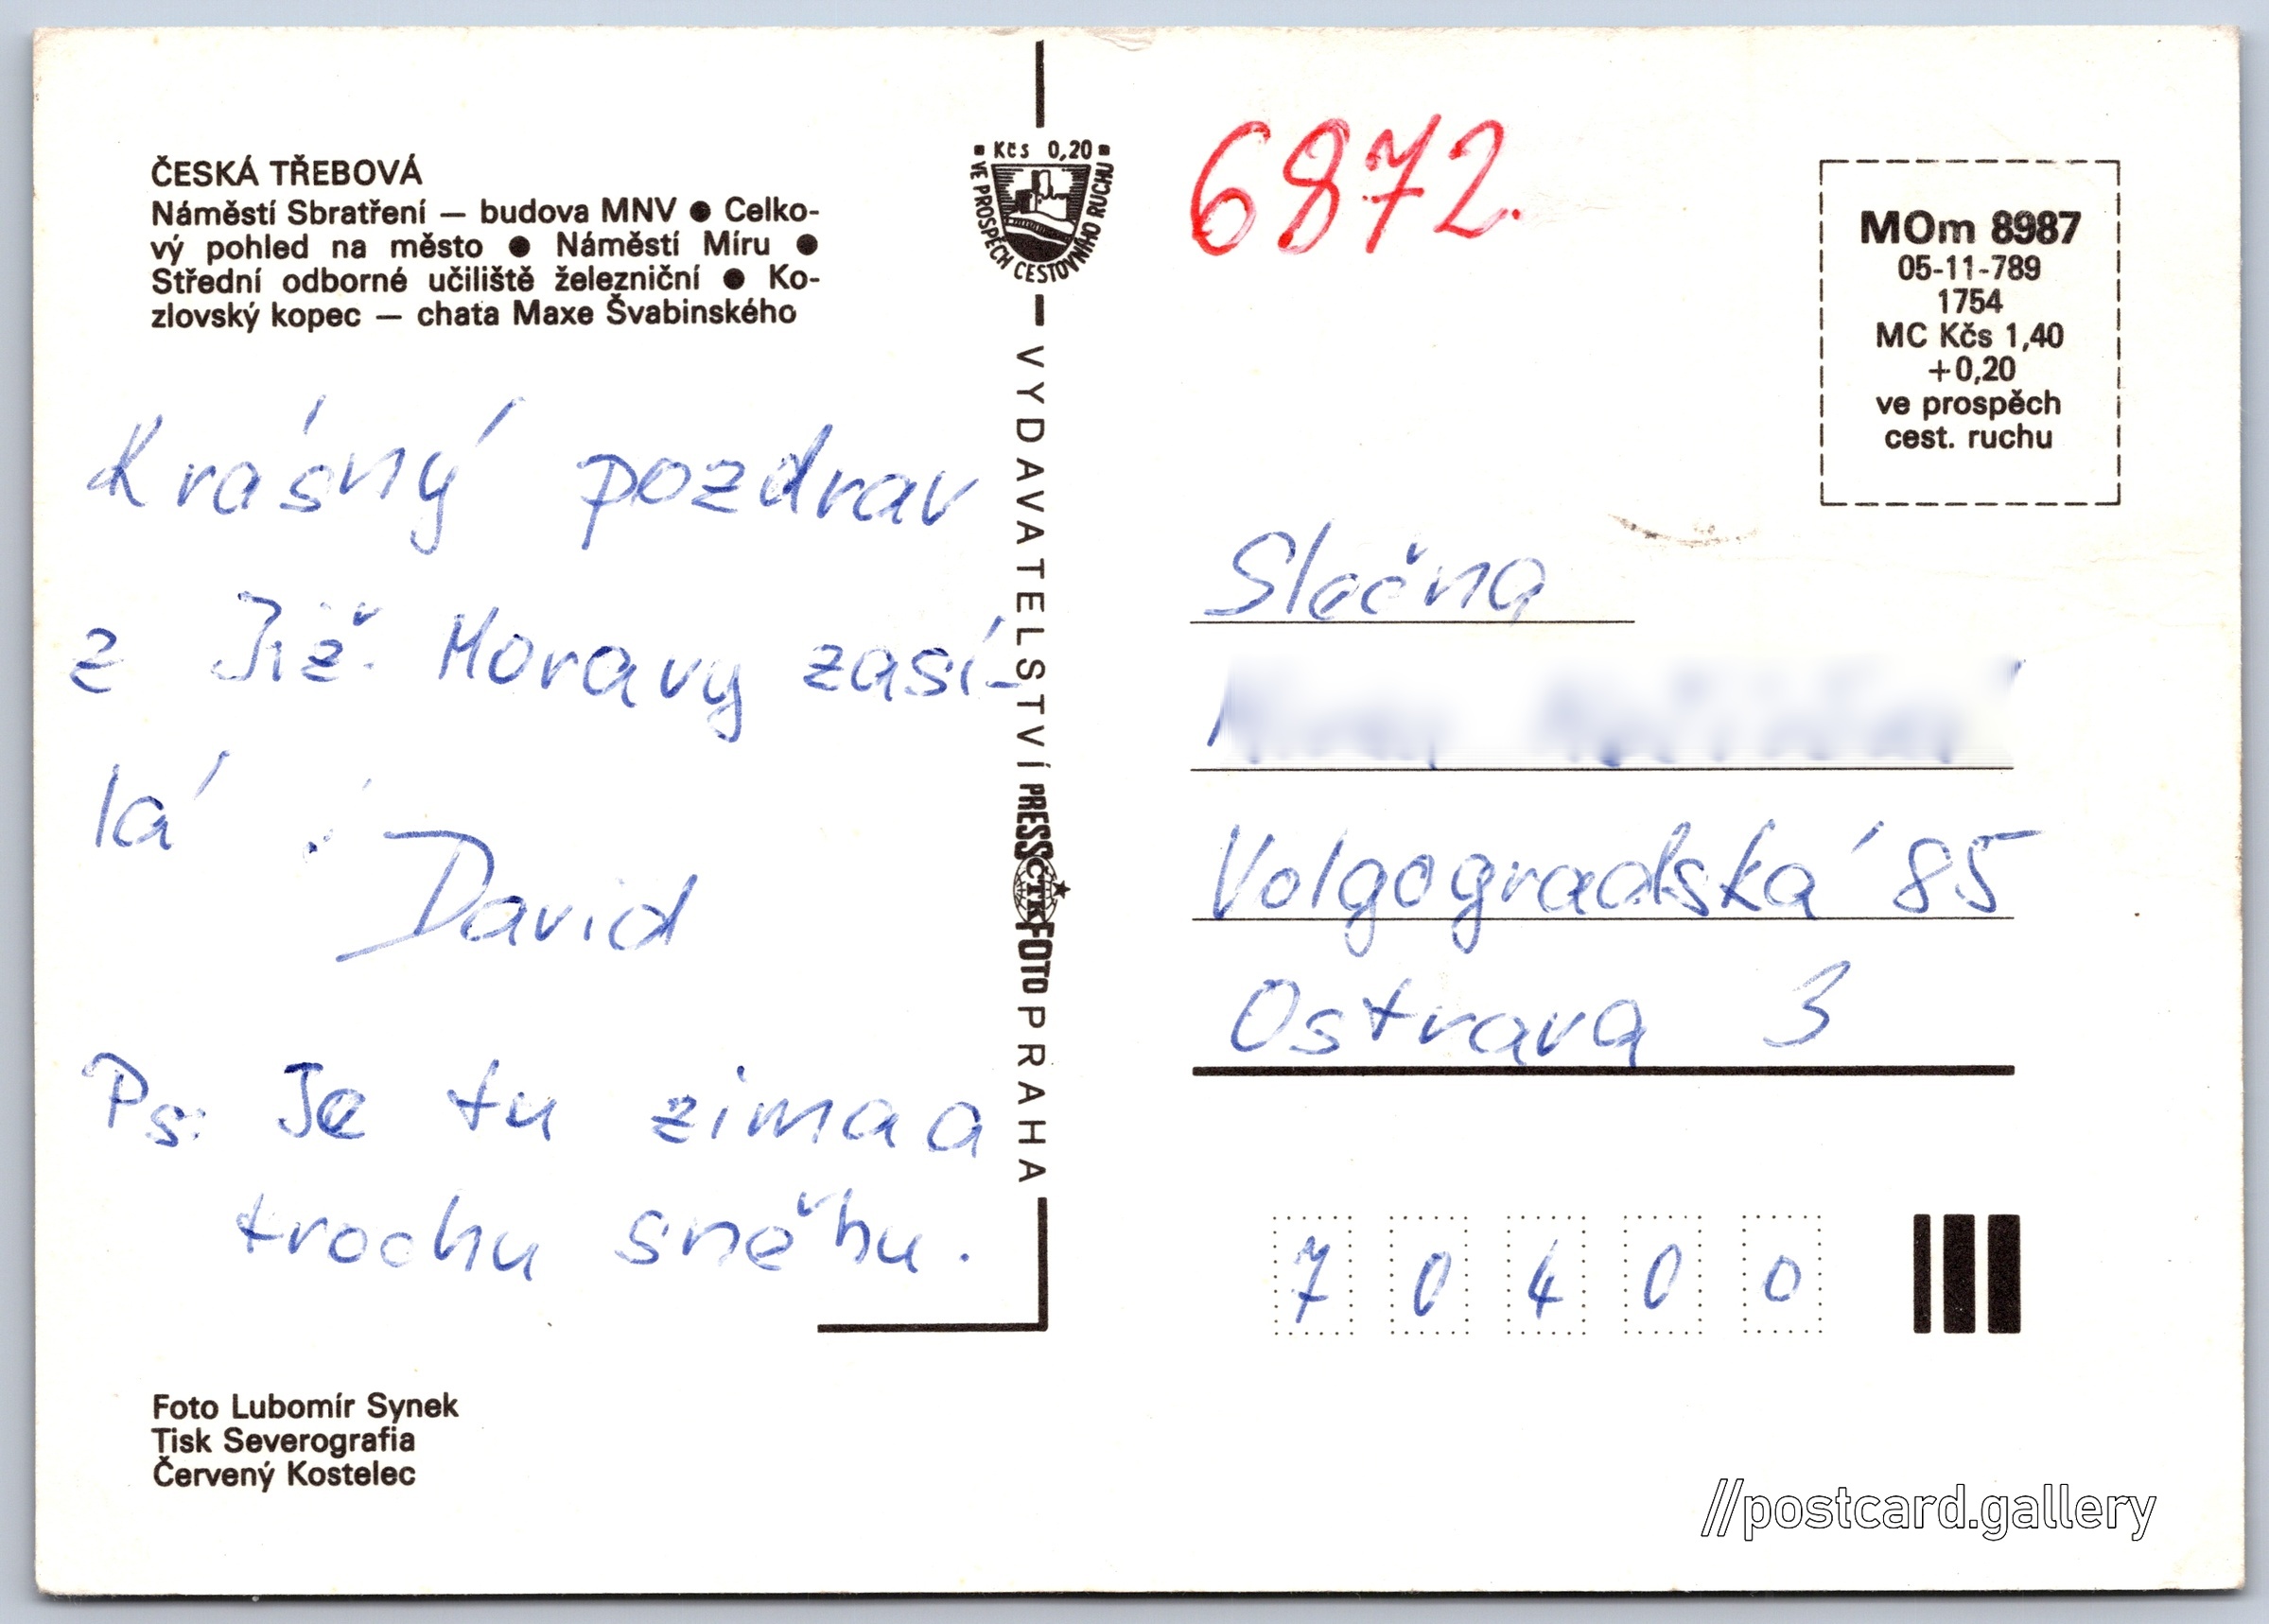 ČESKÁ TŘEBOVÁ
Náměstí Sbratření — budova MNV ● Celko-
vý pohled na město ● Náměstí Míru ●
Střední odborné učiliště železniční ● Ko-
zlovský kopec — chata Maxe Švabinského
Krásný pozdrav
z Již. Moravy zasí-
lá :
David
Ps: Je tu zima a
trochu sněhu.
Foto Lubomír Synek
Tisk Severografia
Červený Kostelec
Kčs 0,20
VE PROSPĚCH CESTOVNÍHO RUCHU
VYDAVATELSTVÍ PRESSFOTO PRAHA
ČTK
6872.
MOm 8987
05-11-789
1754
MC Kčs 1,40
+0,20
ve prospěch
cest. ruchu
Slečna
Volgogradská 85
Ostrava 3
7 0 4 0 0
//postcard.gallery